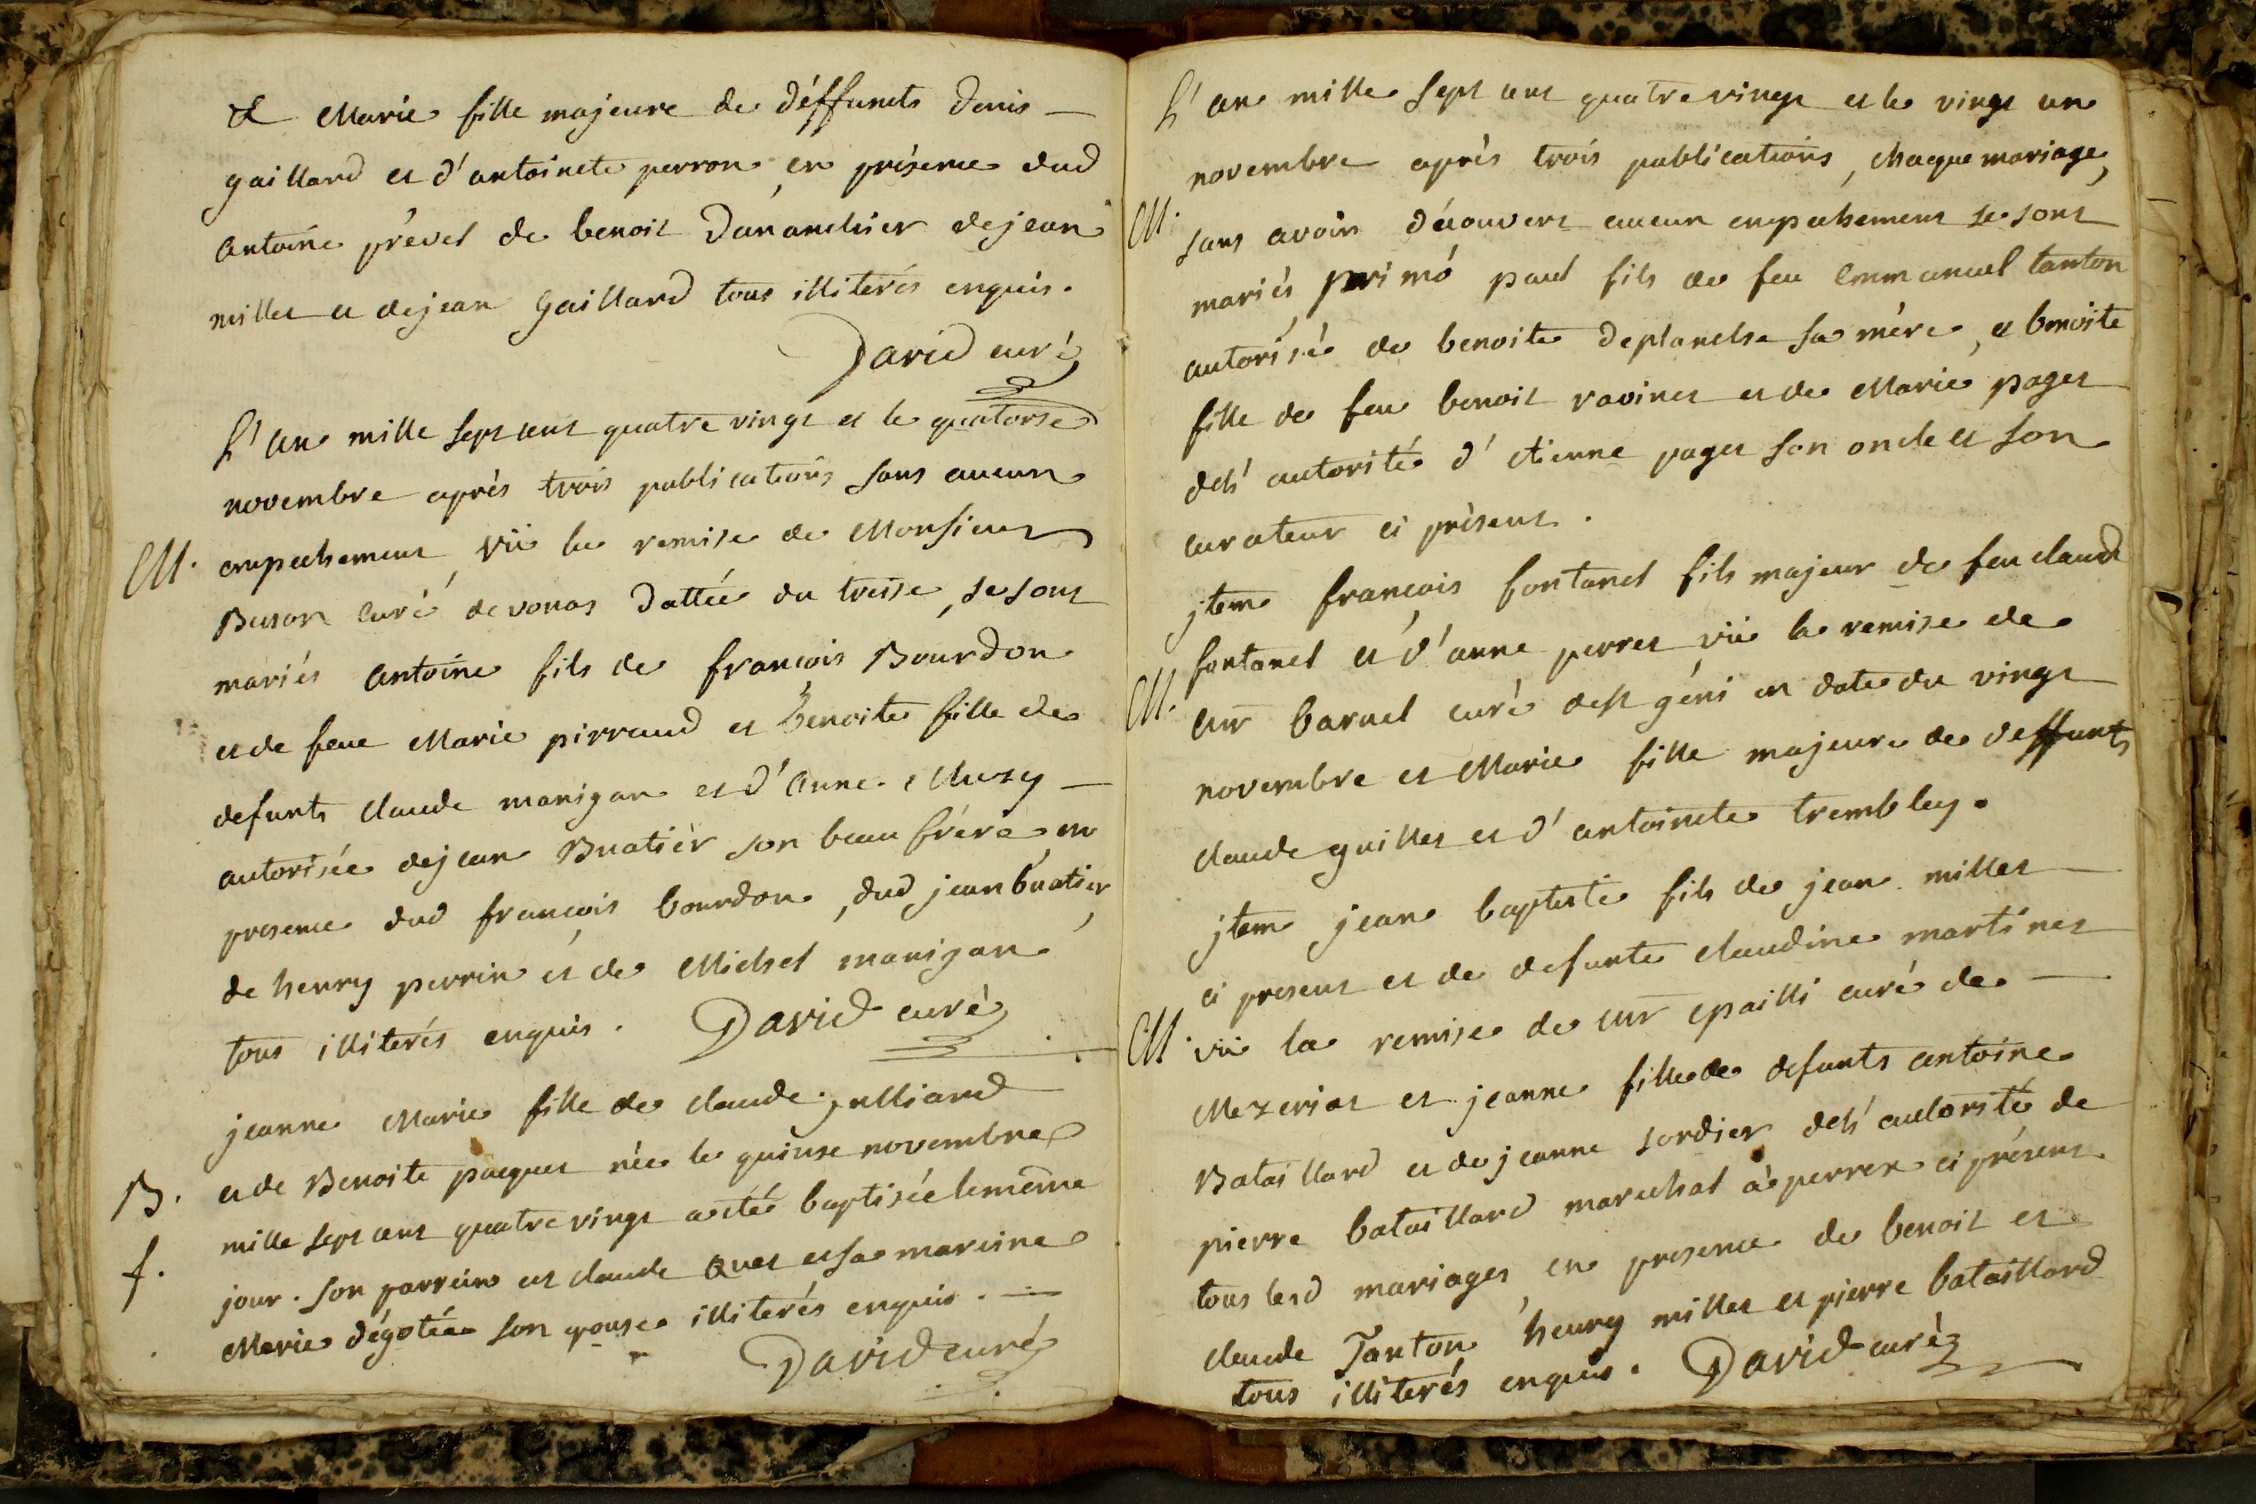 & Marie fille majeure de déffuncts denis
gaillard et d'antoinete perron en présence dud
antoine prevel de benoit dananchier de jean
millet et de jean Gaillard tous illiterés enquis.
David curé
L'an mille sept cent quatre vingt et le quatorse
novembre après trois publications sans aucun
M. empechement vû la remise de Monsieur
Buson curé de vonas dattée du treise, se sont
mariés antoine fils de françois Bourdon
et de feue Marie pirraud et Benoite fille de
defunts claude manigan et d'anne Musy
autorisée de jean Buatier son beau frére en
presence dud françois bourdon, dud jean buatier,
de henry perrin et de Michel manigan
tous illiterés enquis. David curé
jeanne Marie fille de claude julliard
B. et de Benoite pacquet née le quinse novembre
f. mille sept cent quatre vingt a été baptisée le même
jour. son parrein est claude Quet et sa mareine
Marie dégotée son epouse illiterés enquis.
David curé
L'an mille sept cent quatre vingt et le vingt un
novembre après trois publications, chaque mariage,
M. sans avoir découvert aucun empechement se sont
mariés primó paul fils de feu emmanuel tanton
autorisé de benoite deplanche sa mére, et benoite
fille de feu benoit ravinet et de Marie paget
de l'autorité d'etienne paget son oncle et son
curateur ci présent.
jtem françois fontanel fils majeur de feu claude
fontanel et d'anne perret vû la remise de
M. mr baruel curé de st géni en date du vingt
novembre et Marie fille majeure de deffunts
claude guillet et d'antoinete tremblay.
jtem jean baptiste fils de jean millet
ci present et de defunte claudine martinet
M. vû la remise de mr epailli curé de
Mezeriat et jeanne fille de defunts antoine
Bataillard et de jeanne sordier de l'autorité de
pierre bataillard marechal à perrex ci présent
tous lesd mariages en presence de benoit et
claude Tanton henry millet et pierre bataillard
tous illiterés enquis. David curé